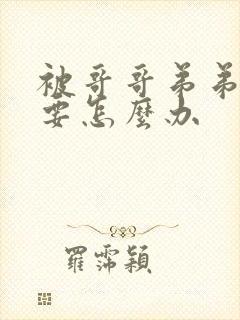 被哥哥弟弟
要怎麼办
羅霈穎